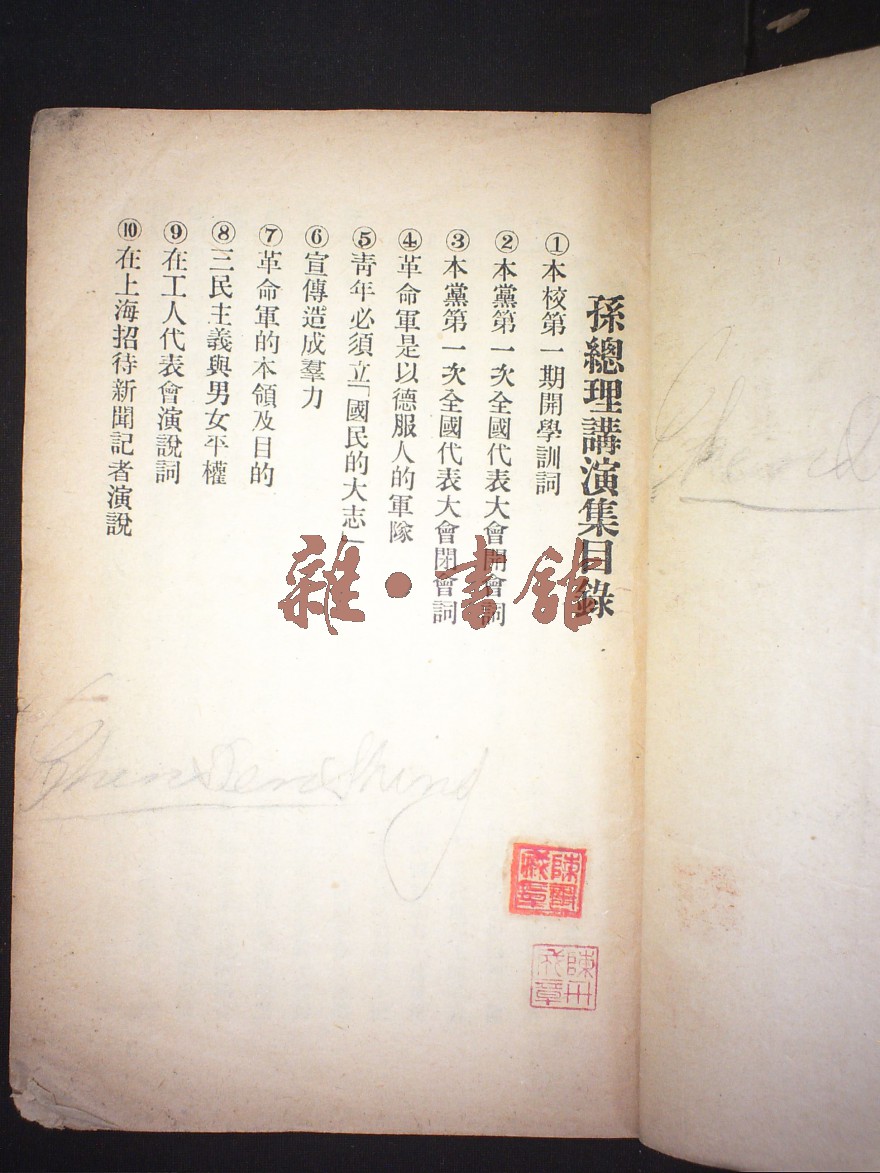 孫總理講演集目錄
①本校第一期開學訓詞
②本黨第一次全國代表大會開會詞
③本黨第一次全國代表大會閉會詞
④革命軍是以德服人的軍隊
⑤靑年必須立「國民的大志」
⑥宣傳造成羣力
⑦革命軍的本領及目的
⑧三民主義與男女平權
⑨在工人代表會演說詞
⑩在上海招待新聞記者演說
雜·書館